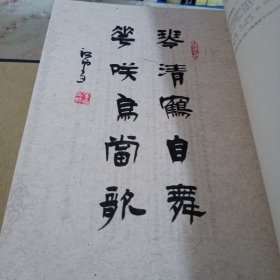 琴清鶴自舞
花咲鳥當歌